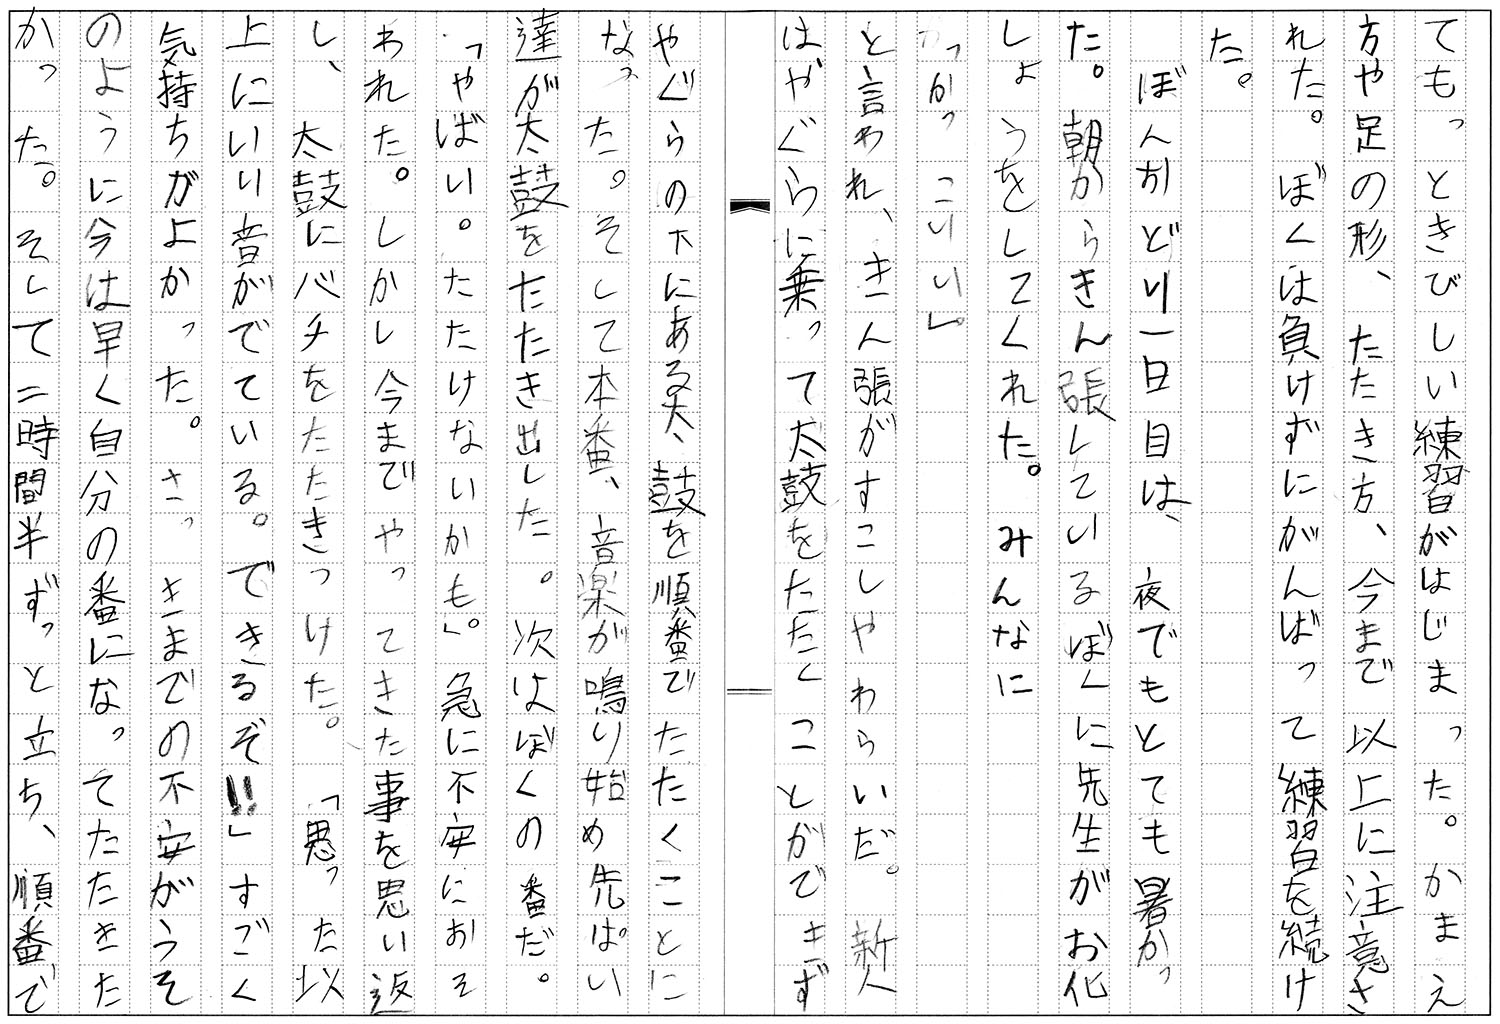 てもっときびしい練習がはじまった。かまえ
方や足の形、たたき方、今まで以上に注意さ
れた。ぼくは負けずにがんばって練習を続け
た。
ぼんおどり一日目は、夜でもとても暑かっ
た。朝からきん張しているぼくに先生がお化
しょうをしてくれた。みんなに
「かっこいい」。
と言われ、きん張がすこしやわらいだ。新人
はやぐらに乗って太鼓をたたくことができず
やぐらの下にある太鼓を順番でたたくことに
なった。そして本番、音楽が鳴り始め先ぱい
達が太鼓をたたき出した。次はぼくの番だ。
「やばい。たたけないかも」。急に不安におそ
われた。しかし今までやってきた事を思い返
し、太鼓にバチをたたきつけた。「思った以
上にいい音がでている。できるぞ!!」すごく
気持ちがよかった。さっきまでの不安がうそ
のように今は早く自分の番になってたたきた
かった。そして二時間半ずっと立ち、順番で